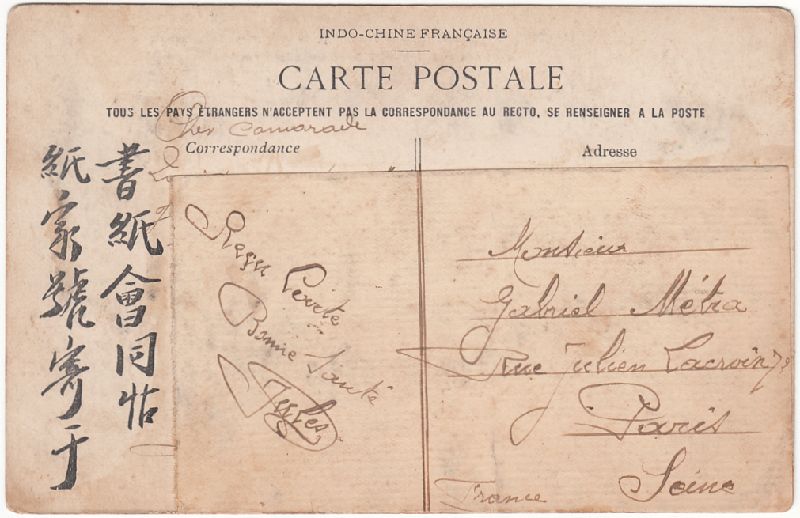 INDO-CHINE FRANÇAISE
CARTE POSTALE
TOUS LES PAYS ÉTRANGERS N'ACCEPTENT PAS LA CORRESPONDANCE AU RECTO, SE RENSEIGNER A LA POSTE
Cher Camarade
Correspondance
Adresse
書紙會同帖
紙家號寄于
Bonne Santé
Jules
Monsieur
Gabriel Métra
Rue Julien Lacroix
Paris
Seine
France